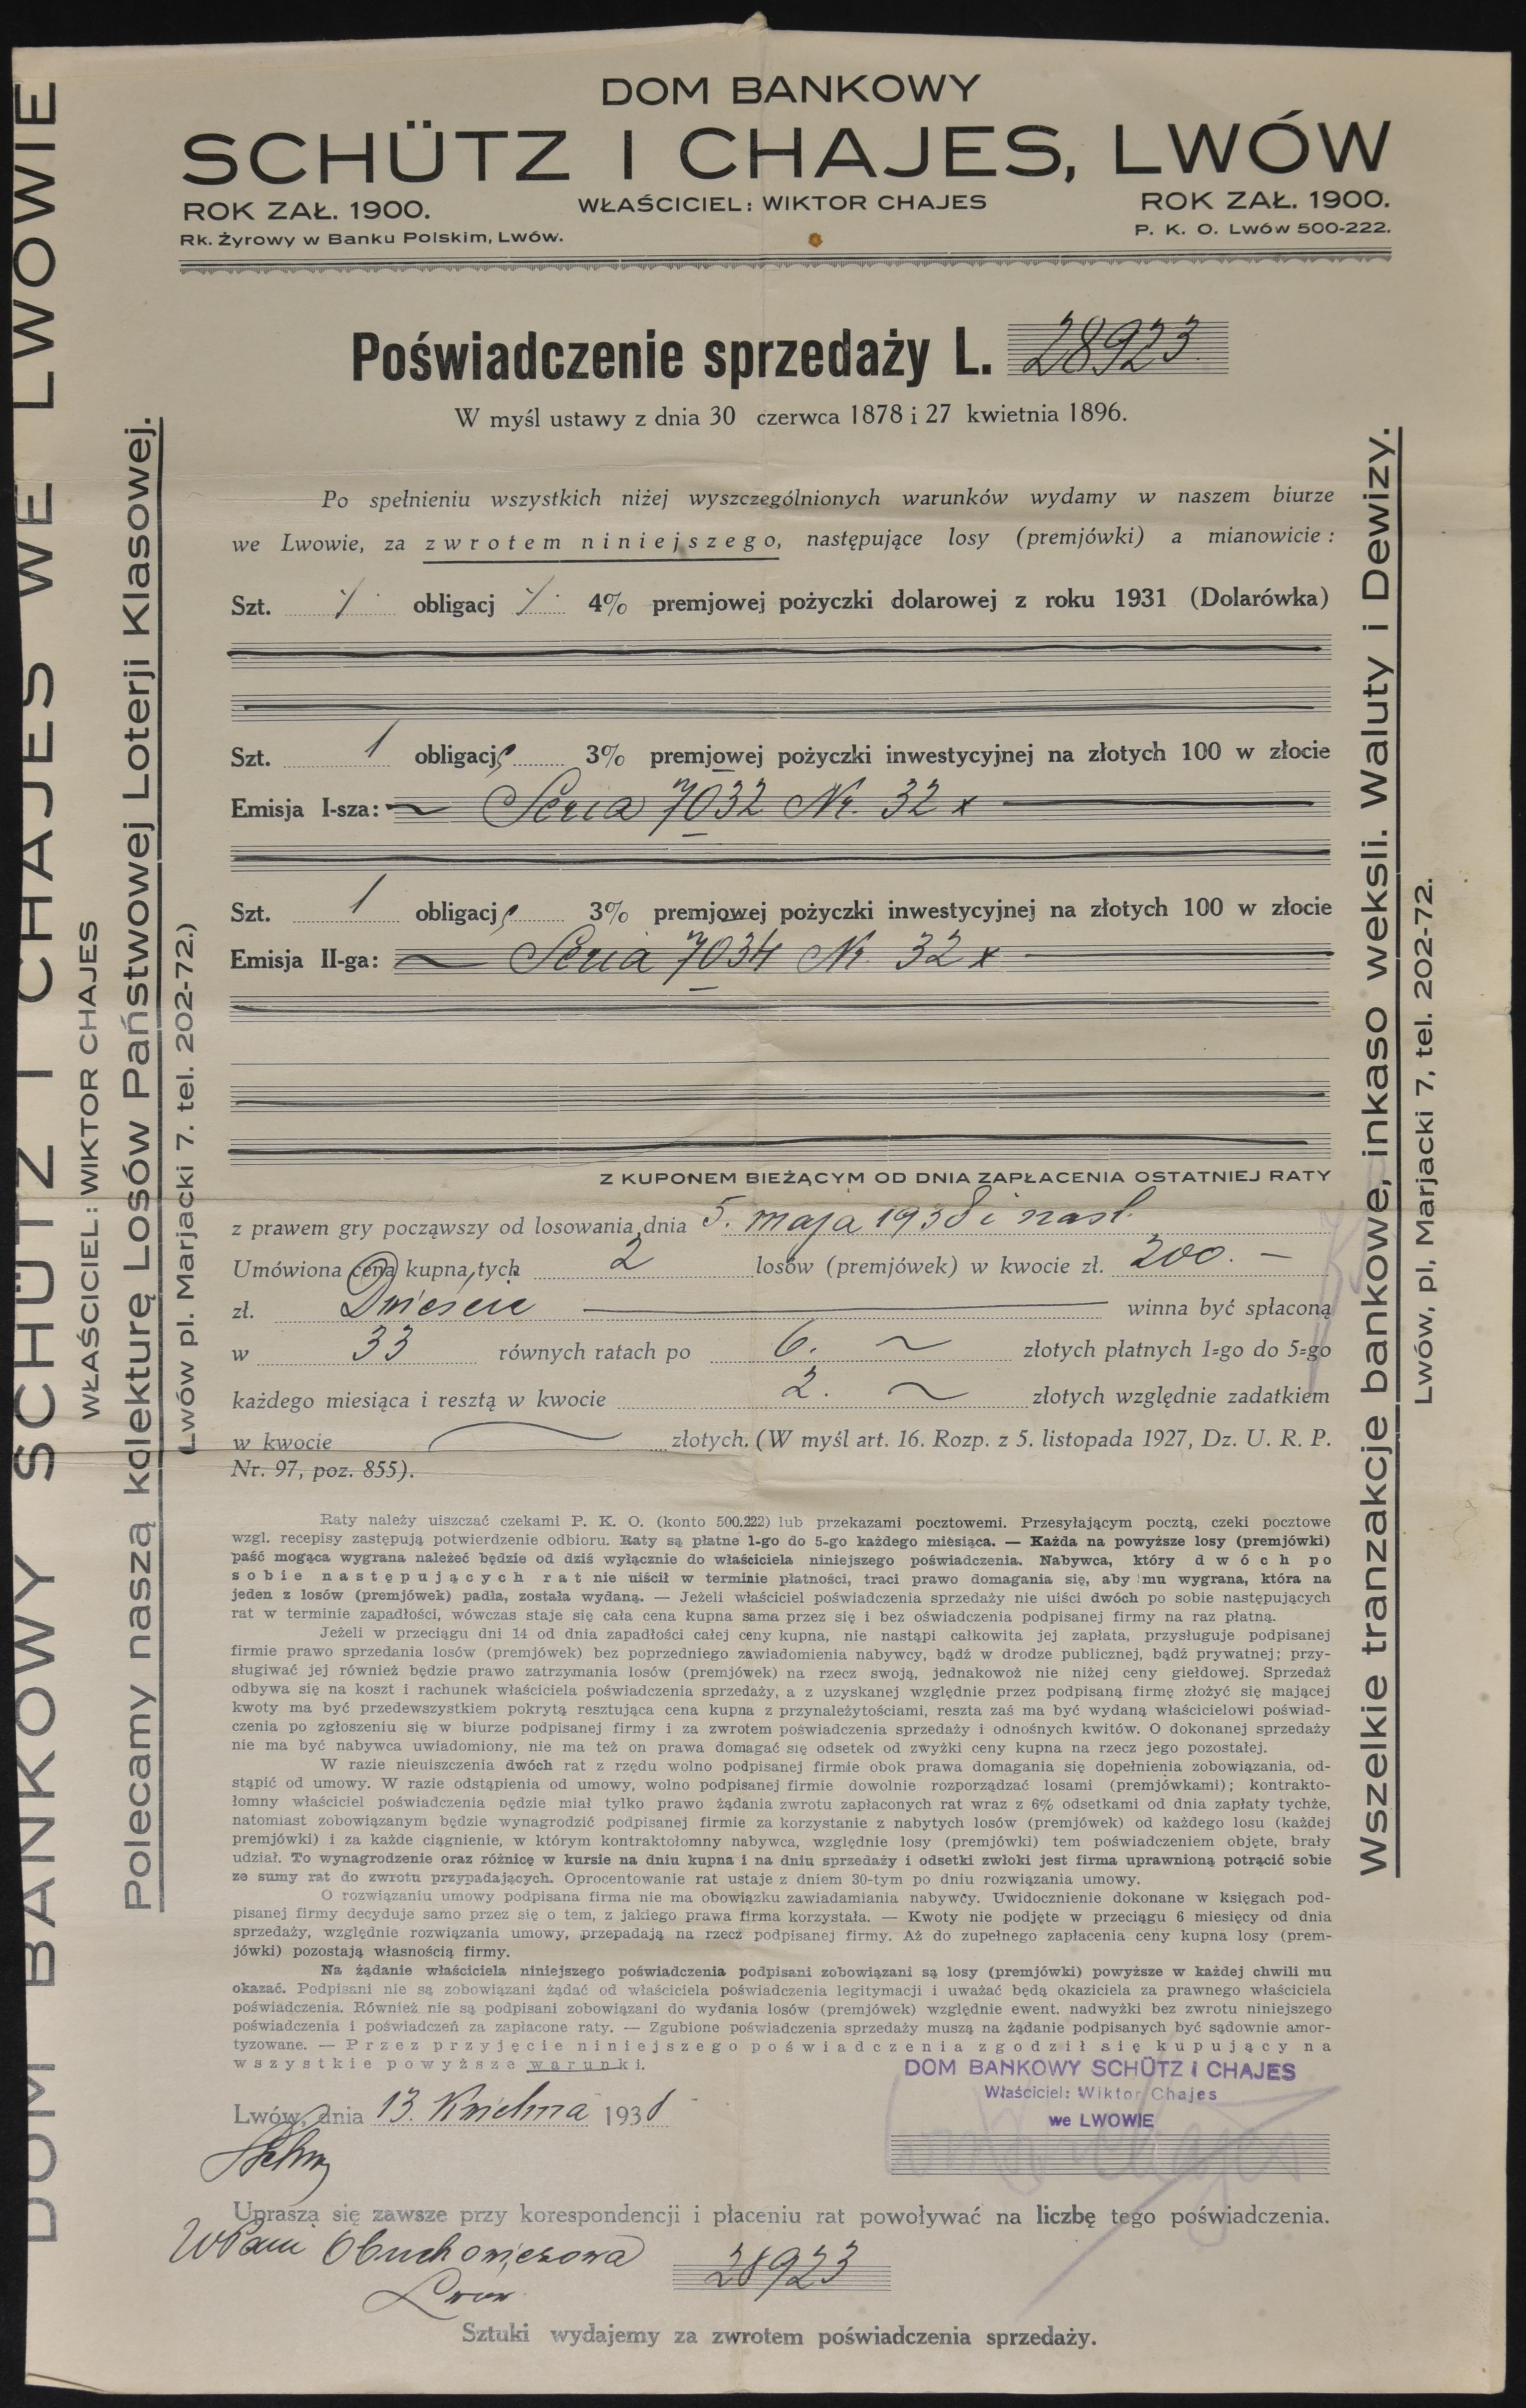 DOM BANKOWY
SCHÜTZ I CHAJES, LWÓW
ROK ZAŁ. 1900.
WŁAŚCICIEL: WIKTOR CHAJES
ROK ZAŁ. 1900.
Rk. Żyrowy w Banku Polskim, Lwów.
P. K. O. Lwów 500-222.
DOM BANKOWY SCHÜTZ I CHAJES WE LWOWIE
WŁAŚCICIEL: WIKTOR CHAJES
Polecamy naszą kolekturę Losów Państwowej Loterji Klasowej.
Lwów pl. Marjacki 7. tel. 202-72.)
Poświadczenie sprzedaży L. 28923
W myśl ustawy z dnia 30 czerwca 1878 i 27 kwietnia 1896.
Po spełnieniu wszystkich niżej wyszczególnionych warunków wydamy w naszem biurze
we Lwowie, za zwrotem niniejszego, następujące losy (premjówki) a mianowicie :
Szt. obligacj 4% premjowej pożyczki dolarowej z roku 1931 (Dolarówka)
Szt. 1 obligację 3% premjowej pożyczki inwestycyjnej na złotych 100 w złocie
Emisja I-sza: Seria 7032 Nr. 32 x
Szt. 1 obligację 3% premjowej pożyczki inwestycyjnej na złotych 100 w złocie
Emisja II-ga: Seria 7034 Nr 32 x
Z KUPONEM BIEŻĄCYM OD DNIA ZAPŁACENIA OSTATNIEJ RATY
z prawem gry począwszy od losowania dnia 5. maja 1938 i nast.
Umówiona cena kupna tych 2 losów (premjówek) w kwocie zł. 200. —
zł. Dwieście winna być spłaconą
w 33 równych ratach po 6. złotych płatnych 1-go do 5-go
każdego miesiąca i resztą w kwocie 2. złotych względnie zadatkiem
w kwocie złotych. (W myśl art. 16. Rozp. z 5. listopada 1927, Dz. U. R. P.
Nr. 97, poz. 855).
Raty należy uiszczać czekami P. K. O. (konto 500.222) lub przekazami pocztowemi. Przesyłającym pocztą, czeki pocztowe
wzgl. recepisy zastępują potwierdzenie odbioru. Raty są płatne 1-go do 5-go każdego miesiąca. — Każda na powyższe losy (premjówki)
paść mogąca wygrana należeć będzie od dziś wyłącznie do właściciela niniejszego poświadczenia. Nabywca, który dwóch po
sobie następujących rat nie uiścił w terminie płatności, traci prawo domagania się, aby mu wygrana, która na
jeden z losów (premjówek) padła, została wydaną. — Jeżeli właściciel poświadczenia sprzedaży nie uiści dwóch po sobie następujących
rat w terminie zapadłości, wówczas staje się cała cena kupna sama przez się i bez oświadczenia podpisanej firmy na raz płatną.
Jeżeli w przeciągu dni 14 od dnia zapadłości całej ceny kupna, nie nastąpi całkowita jej zapłata, przysługuje podpisanej
firmie prawo sprzedania losów (premjówek) bez poprzedniego zawiadomienia nabywcy, bądź w drodze publicznej, bądź prywatnej; przy-
sługiwać jej również będzie prawo zatrzymania losów (premjówek) na rzecz swoją, jednakowoż nie niżej ceny giełdowej. Sprzedaż
odbywa się na koszt i rachunek właściciela poświadczenia sprzedaży, a z uzyskanej względnie przez podpisaną firmę złożyć się mającej
kwoty ma być przedewszystkiem pokrytą resztująca cena kupna z przynależytościami, reszta zaś ma być wydaną właścicielowi poświad-
czenia po zgłoszeniu się w biurze podpisanej firmy i za zwrotem poświadczenia sprzedaży i odnośnych kwitów. O dokonanej sprzedaży
nie ma być nabywca uwiadomiony, nie ma też on prawa domagać się odsetek od zwyżki ceny kupna na rzecz jego pozostałej.
W razie nieuiszczenia dwóch rat z rzędu wolno podpisanej firmie obok prawa domagania się dopełnienia zobowiązania, od-
stąpić od umowy. W razie odstąpienia od umowy, wolno podpisanej firmie dowolnie rozporządzać losami (premjówkami); kontrakto-
łomny właściciel poświadczenia będzie miał tylko prawo żądania zwrotu zapłaconych rat wraz z 6% odsetkami od dnia zapłaty tychże,
natomiast zobowiązanym będzie wynagrodzić podpisanej firmie za korzystanie z nabytych losów (premjówek) od każdego losu (każdej
premjówki) i za każde ciągnienie, w którym kontraktołomny nabywca, względnie losy (premjówki) tem poświadczeniem objęte, brały
udział. To wynagrodzenie oraz różnicę w kursie na dniu kupna i na dniu sprzedaży i odsetki zwłoki jest firma uprawnioną potrącić sobie
ze sumy rat do zwrotu przypadających. Oprocentowanie rat ustaje z dniem 30-tym po dniu rozwiązania umowy.
O rozwiązaniu umowy podpisana firma nie ma obowiązku zawiadamiania nabywcy. Uwidocznienie dokonane w księgach pod-
pisanej firmy decyduje samo przez się o tem, z jakiego prawa firma korzystała. — Kwoty nie podjęte w przeciągu 6 miesięcy od dnia
sprzedaży, względnie rozwiązania umowy, przepadają na rzecz podpisanej firmy. Aż do zupełnego zapłacenia ceny kupna losy (prem-
jówki) pozostają własnością firmy.
Na żądanie właściciela niniejszego poświadczenia podpisani zobowiązani są losy (premjówki) powyższe w każdej chwili mu
okazać. Podpisani nie są zobowiązani żądać od właściciela poświadczenia legitymacji i uważać będą okaziciela za prawnego właściciela
poświadczenia. Również nie są podpisani zobowiązani do wydania losów (premjówek) względnie ewent. nadwyżki bez zwrotu niniejszego
poświadczenia i poświadczeń za zapłacone raty. — Zgubione poświadczenia sprzedaży muszą na żądanie podpisanych być sądownie amor-
tyzowane. — Przez przyjęcie niniejszego poświadczenia zgodził się kupujący na
wszystkie powyższe warunki.
DOM BANKOWY SCHÜTZ i CHAJES
Właściciel: Wiktor Chajes
we LWOWIE
Lwów, dnia 13. Kwietnia 1938
Uprasza się zawsze przy korespondencji i płaceniu rat powoływać na liczbę tego poświadczenia.
WPani Obuchowiczowa
28923
Lwów
Sztuki wydajemy za zwrotem poświadczenia sprzedaży.
Wszelkie tranzakcje bankowe, inkaso weksli. Waluty i Dewizy.
Lwów, pl, Marjacki 7, tel. 202-72.